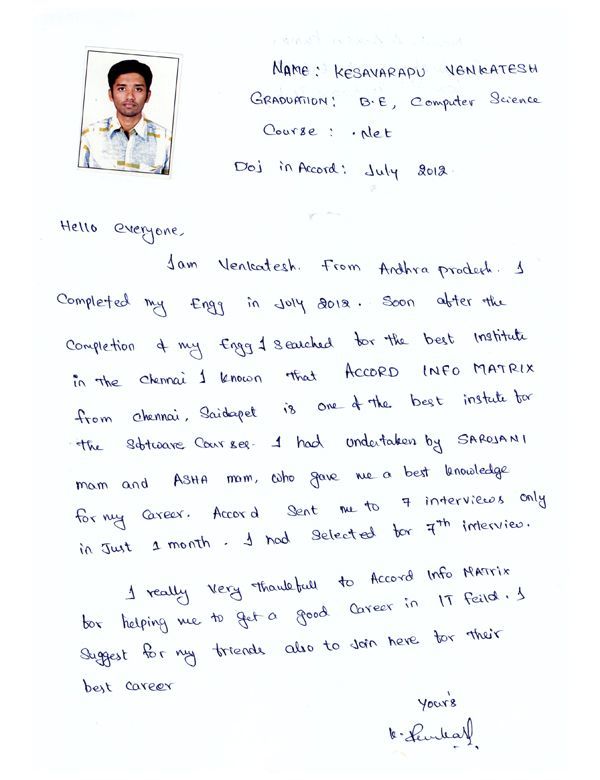 NAME: KESAVARAPU VENKATESH
GRADUATION: B.E, Computer Science
Course: .Net
Doj in Accord: July 2012.
Hello everyone,
I am Venkatesh. From Andhra pradesh. I
Completed my Engg in July 2012. Soon after the
Completion of my Engg I searched for the best institute
in the Chennai I known that ACCORD INFO MATRIX
from chennai, Saidapet is one of the best instute for
the Software Courses. I had undertaken by SAROJANI
mam and ASHA mam, who gave me a best knowledge
for my Career. Accord Sent me to 7 interviews only
in Just 1 month. I had selected for 7th interview.
I really very thankfull to Accord Info MATRIX
for helping me to get a good Career in IT feild. I
suggest for my friends also to Join here for their
best career
Your's